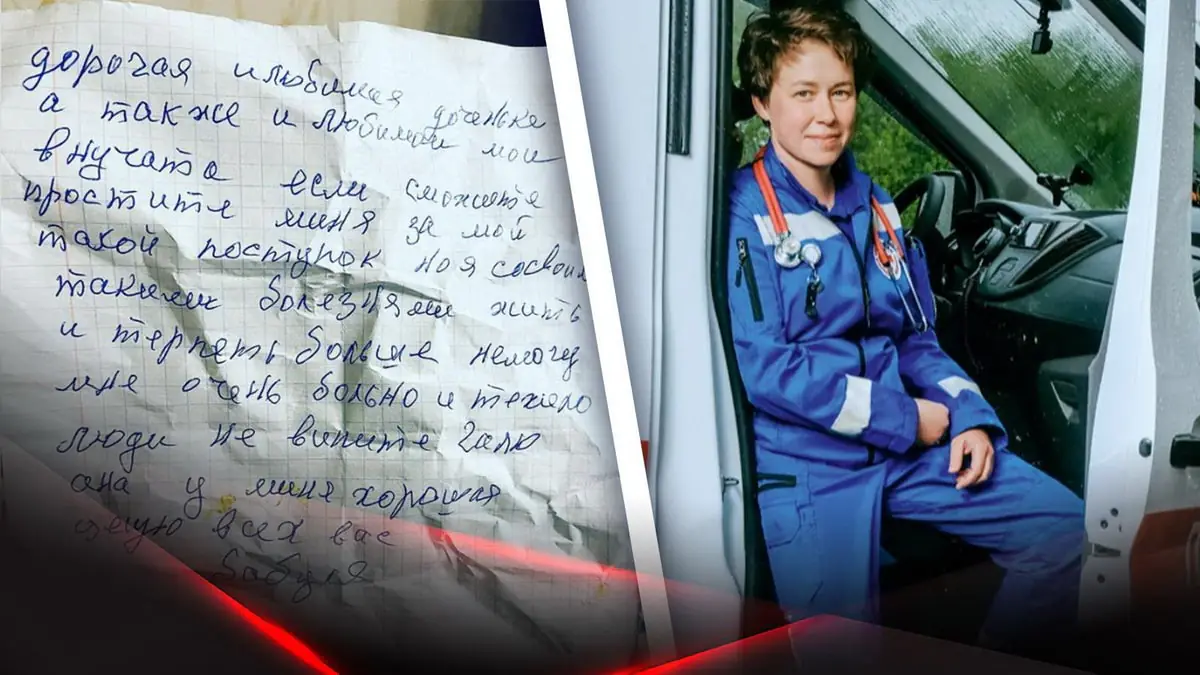 дорогая и любимая доченька
а также и любимаи мои
внучата если сможите
простите миня за мой
такой поступок ноя сосвоим
такими болезнями жить
и терпеть больше немогу
мне очень больно и тежело
люди не вините Галю
она у миня хорошая
целую всех вас
бабуля